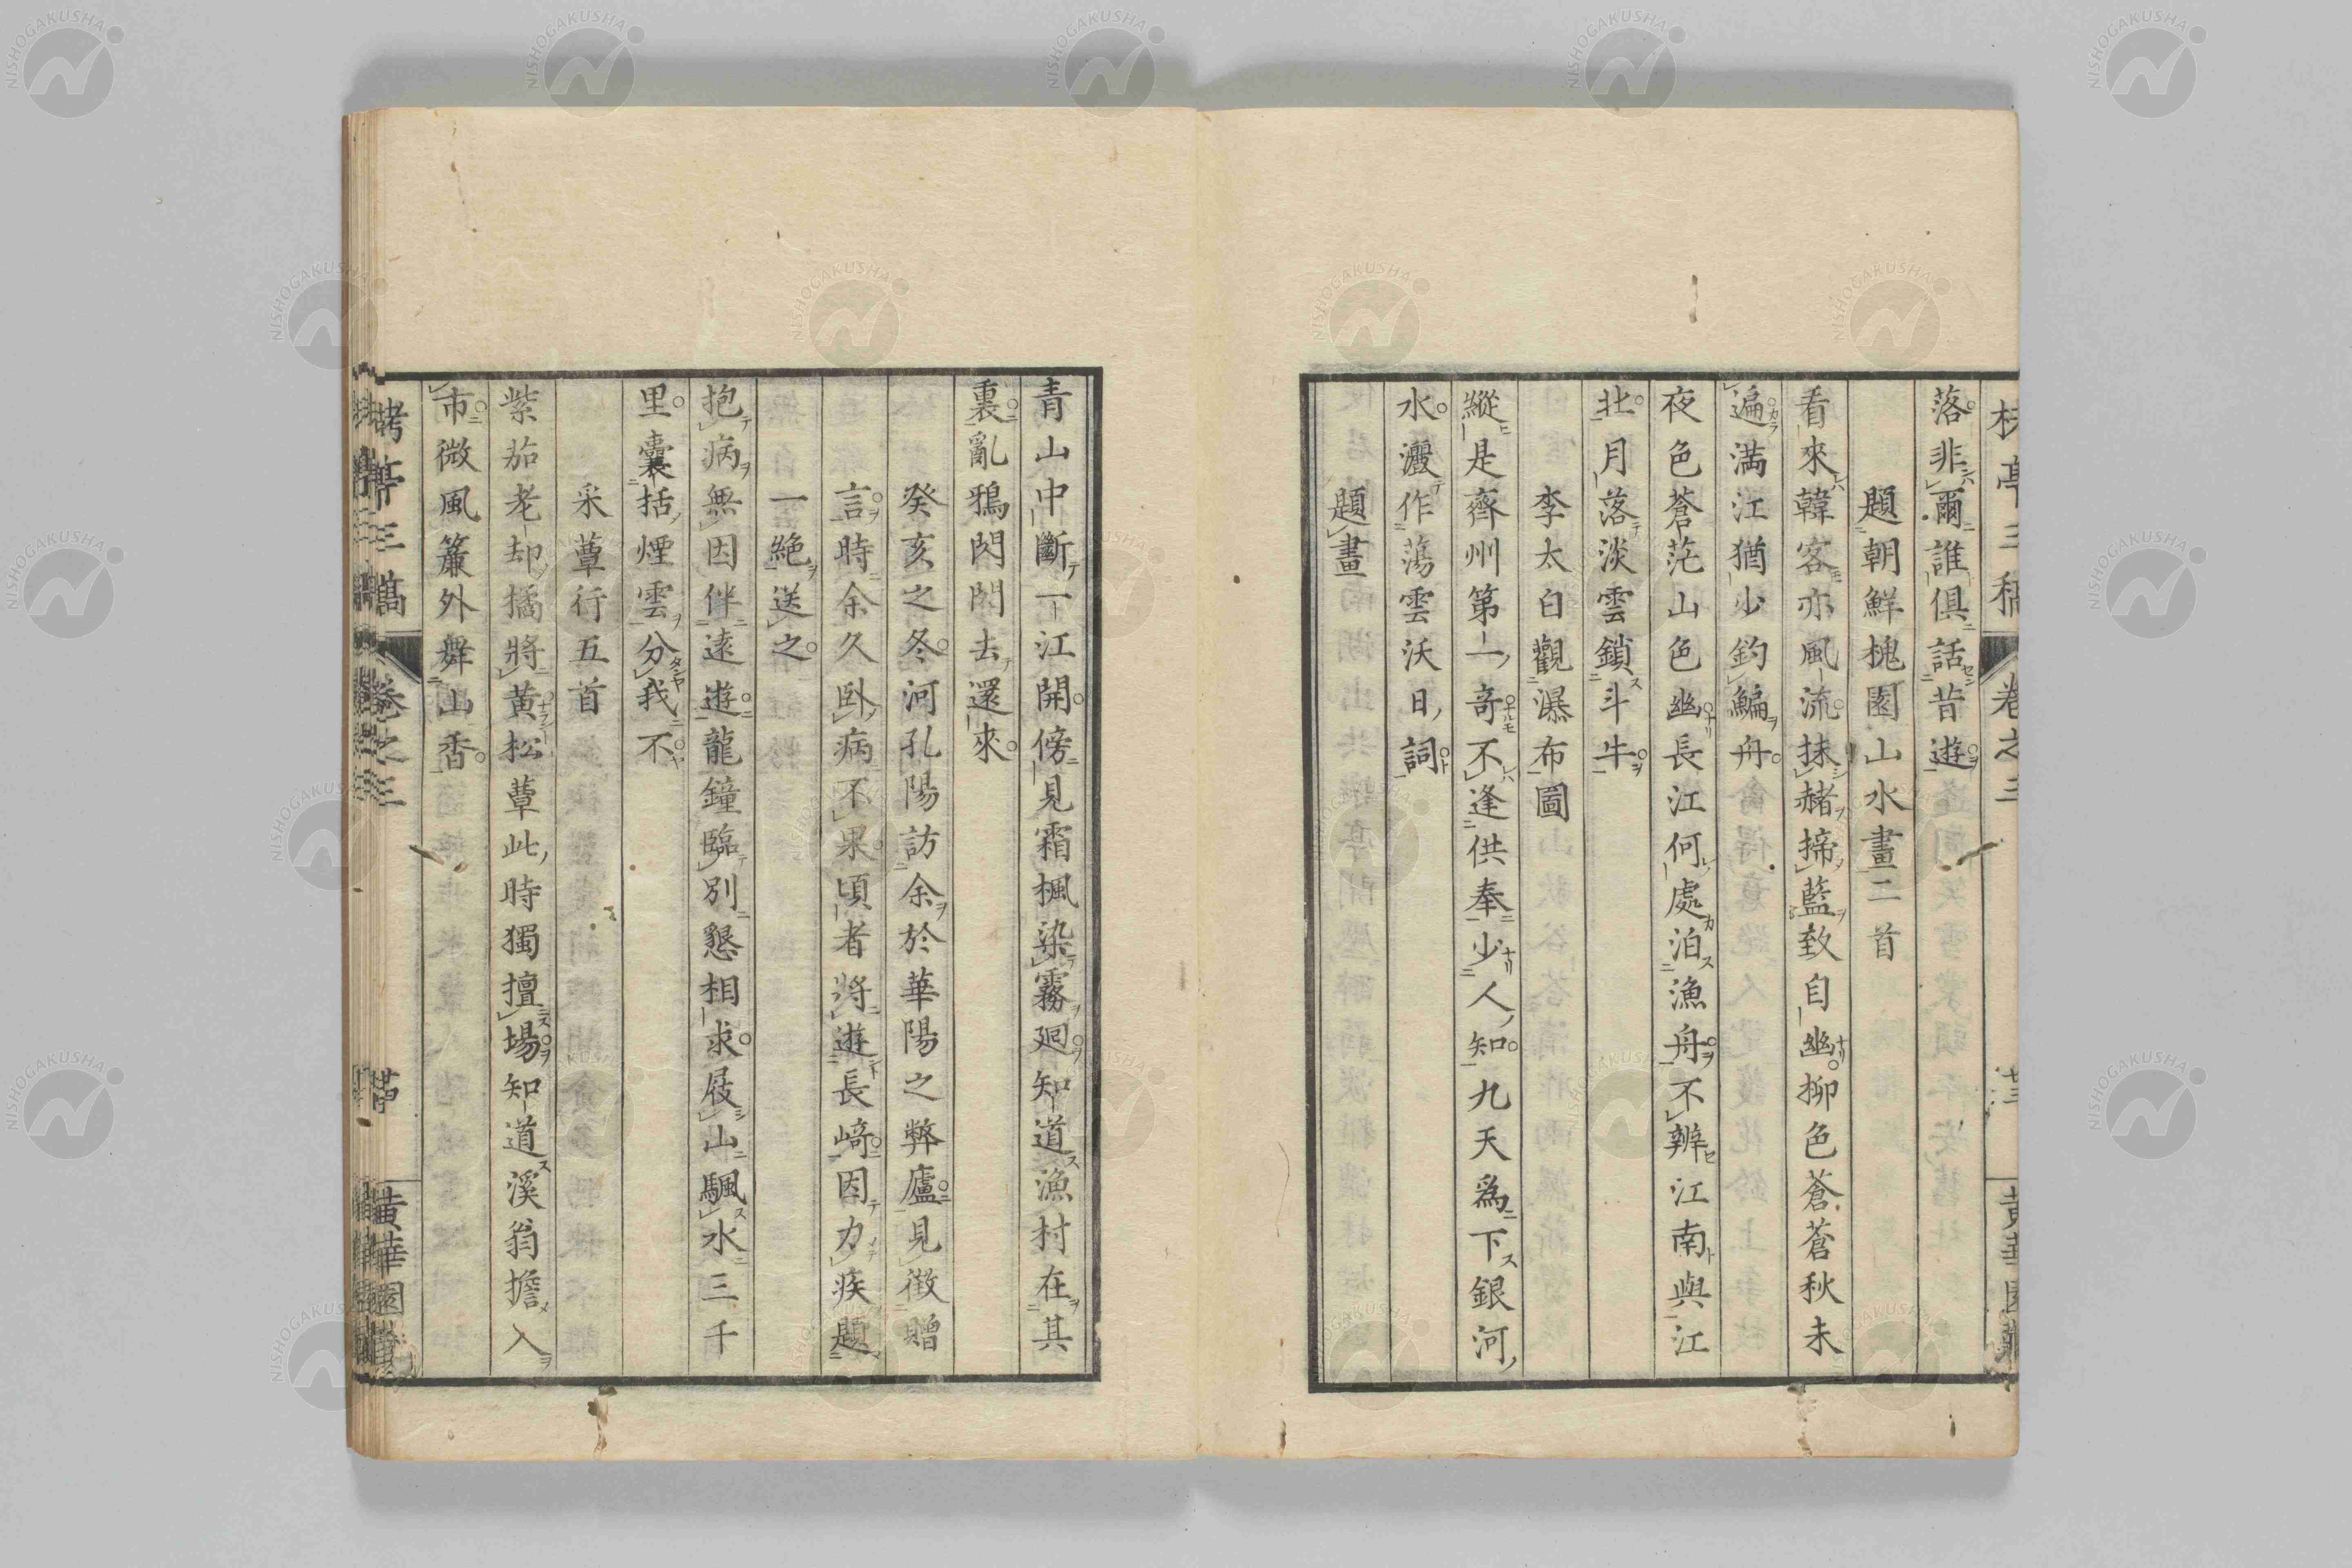 落非爾誰俱話昔遊
題朝鮮槐園山水畫二首
看來韓客亦風流抹赭揥藍致自幽柳色蒼蒼秋未
遍滿江猶少釣鯿舟
夜色蒼茫山色幽長江何處泊漁舟不辨江南與江
北月落淡雲鎖斗牛
李太白觀瀑布圖
縱是齊州第一奇不逢供奉少人知九天爲下銀河
水灑作蕩雲沃日詞
題畫
青山中斷一江開傍見霜楓染霧廻知道漁村在其
裏亂鴉閃閃去還來
癸亥之冬河孔陽訪余於華陽之弊廬見徵贈
言時余久臥病不果頃者將遊長崎因力疾題
一絶送之
抱病無因伴遠遊龍鐘臨別懇相求屐山颿水三千
里囊括煙雲分我不
采蕈行五首
紫茄老却橘將黃松蕈此時獨擅場知道溪翁擔入
市微風簾外舞山香
亭三稿 卷之三
黃華園藏
NISHOGAKUSHA